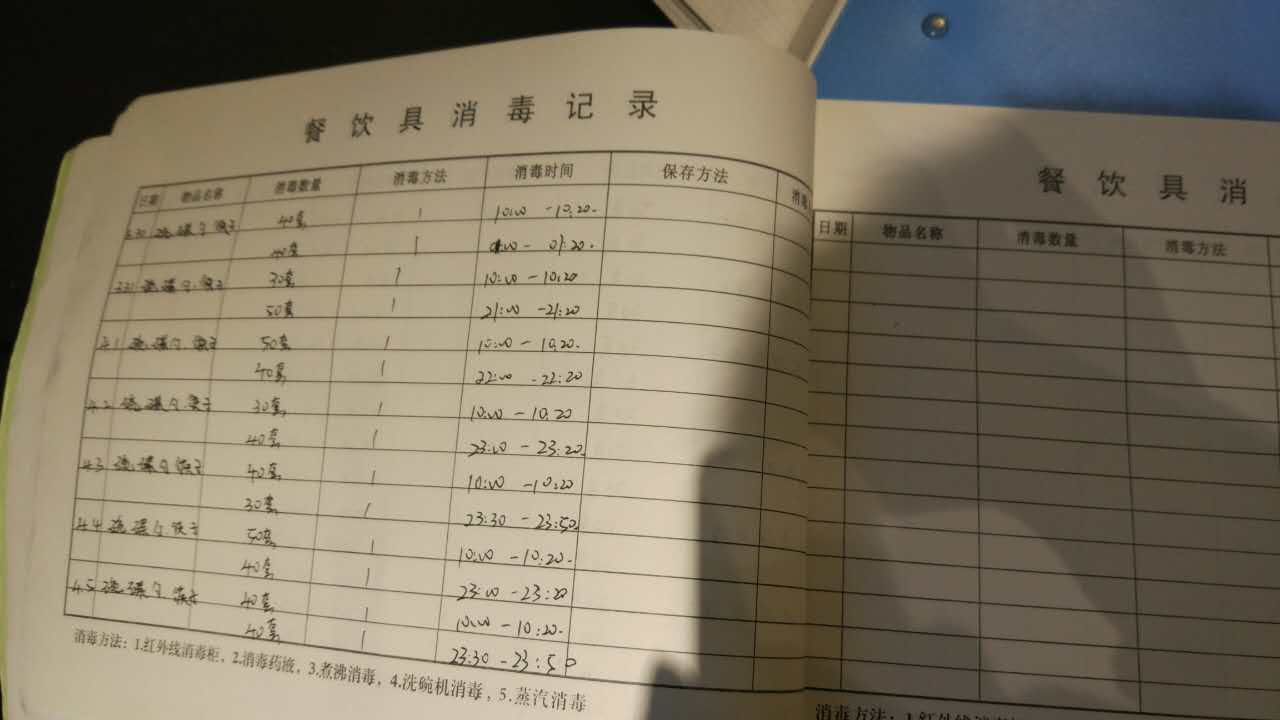 餐饮具消毒记录
日期 物品名称 消毒数量 消毒方法 消毒时间 保存方法 消毒
3.30 碗.碟勺.筷子 40套 1 10:00 - 10:20.
40套 1 01:00 - 01:20.
3.31 碗.碟勺.筷子 30套 1 10:00 - 10:20
50套 1 21:00 - 21:20
4.1 碗.碟勺.筷子 50套 1 10:00 - 10:20.
40套 1 22:00 - 22:20
4.2 碗.碟勺.筷子 30套 1 10:00 - 10:20
40套 1 23:00 - 23:20
4.3 碗.碟勺筷子 40套 1 10:00 - 10:20
30套 1 23:30 - 23:50
4.4 碗.碟勺筷子 50套 1 10:00 - 10:20.
40套 1 23:00 - 23:20
4.5 碗.碟勺筷子 40套 1 10:00 - 10:20.
40套 1 23:30 - 23:50
消毒方法：1.红外线消毒柜，2.消毒药液，3.煮沸消毒，4.洗碗机消毒，5.蒸汽消毒
餐饮具消
日期 物品名称 消毒数量 消毒方法
消毒方法：1.红外线消